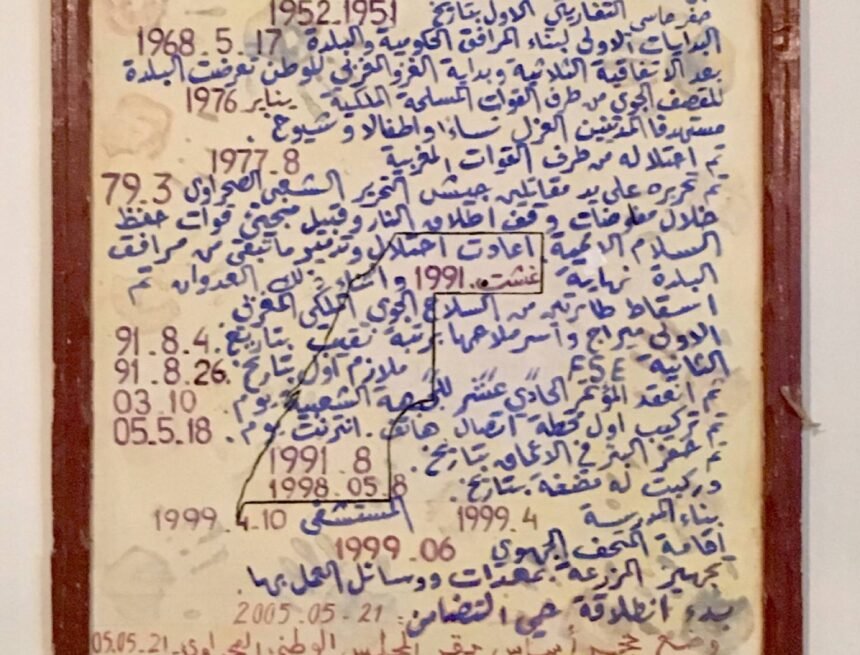 حفر حاسي التفاريتي الاول بتاريخ 1951.1952
البدايات الاولى لبناء المرافق الحكومية والبلدة 17.5.1968
بعد الاتفاقية الثلاثية وبداية الغزو المغربي للوطن تعرضت البلدة
للقصف الجوي من طرف القوات المسلحة الملكية يناير 1976
مستهدفا المدنيين العزل نساءا واطفالا وشيوخ.
تم احتلاله من طرف القوات المغربية 8.1977
تم تحريره على يد مقاتلي جيش التحرير الشعبي الصحراوي 3.79
خلال مفاوضات وقف اطلاق النار وقبيل مجيئ قوات حفظ
السلام الاممية اعادت احتلال وتدمير ما تبقى من مرافق
البلدة نهاية غشت.1991 واثناء ذلك العدوان تم
اسقاط طائرتين من السلاح الجوي الملكي المغربي
الاولى ميراج واسر ملاحها برتبة نقيب بتاريخ 4.8.91
الثانية F5E ملازم اول بتاريخ 26.8.91
تم انعقد المؤتمر الحادي عشر للجبهة الشعبية يوم 10 03
تم تركيب اول محطة اتصال هاتف. انترنت يوم. 18.5.05
تم حفر البئر في الاعماق بتاريخ. 8.1991
وركبت له مضخة بتاريخ. 8.05.1998
بناء المدرسة 4.1999 المستشفى 10.4.1999
اقامة المتحف الجهوي 06.1999
تجهيز الزرعة بمعدات ووسائل العمل بها.
بدء انطلاقة حي التضامن: 21-05-2005
وضع حجر أساس مقر المجلس الوطني الصحراوي 21-05.05